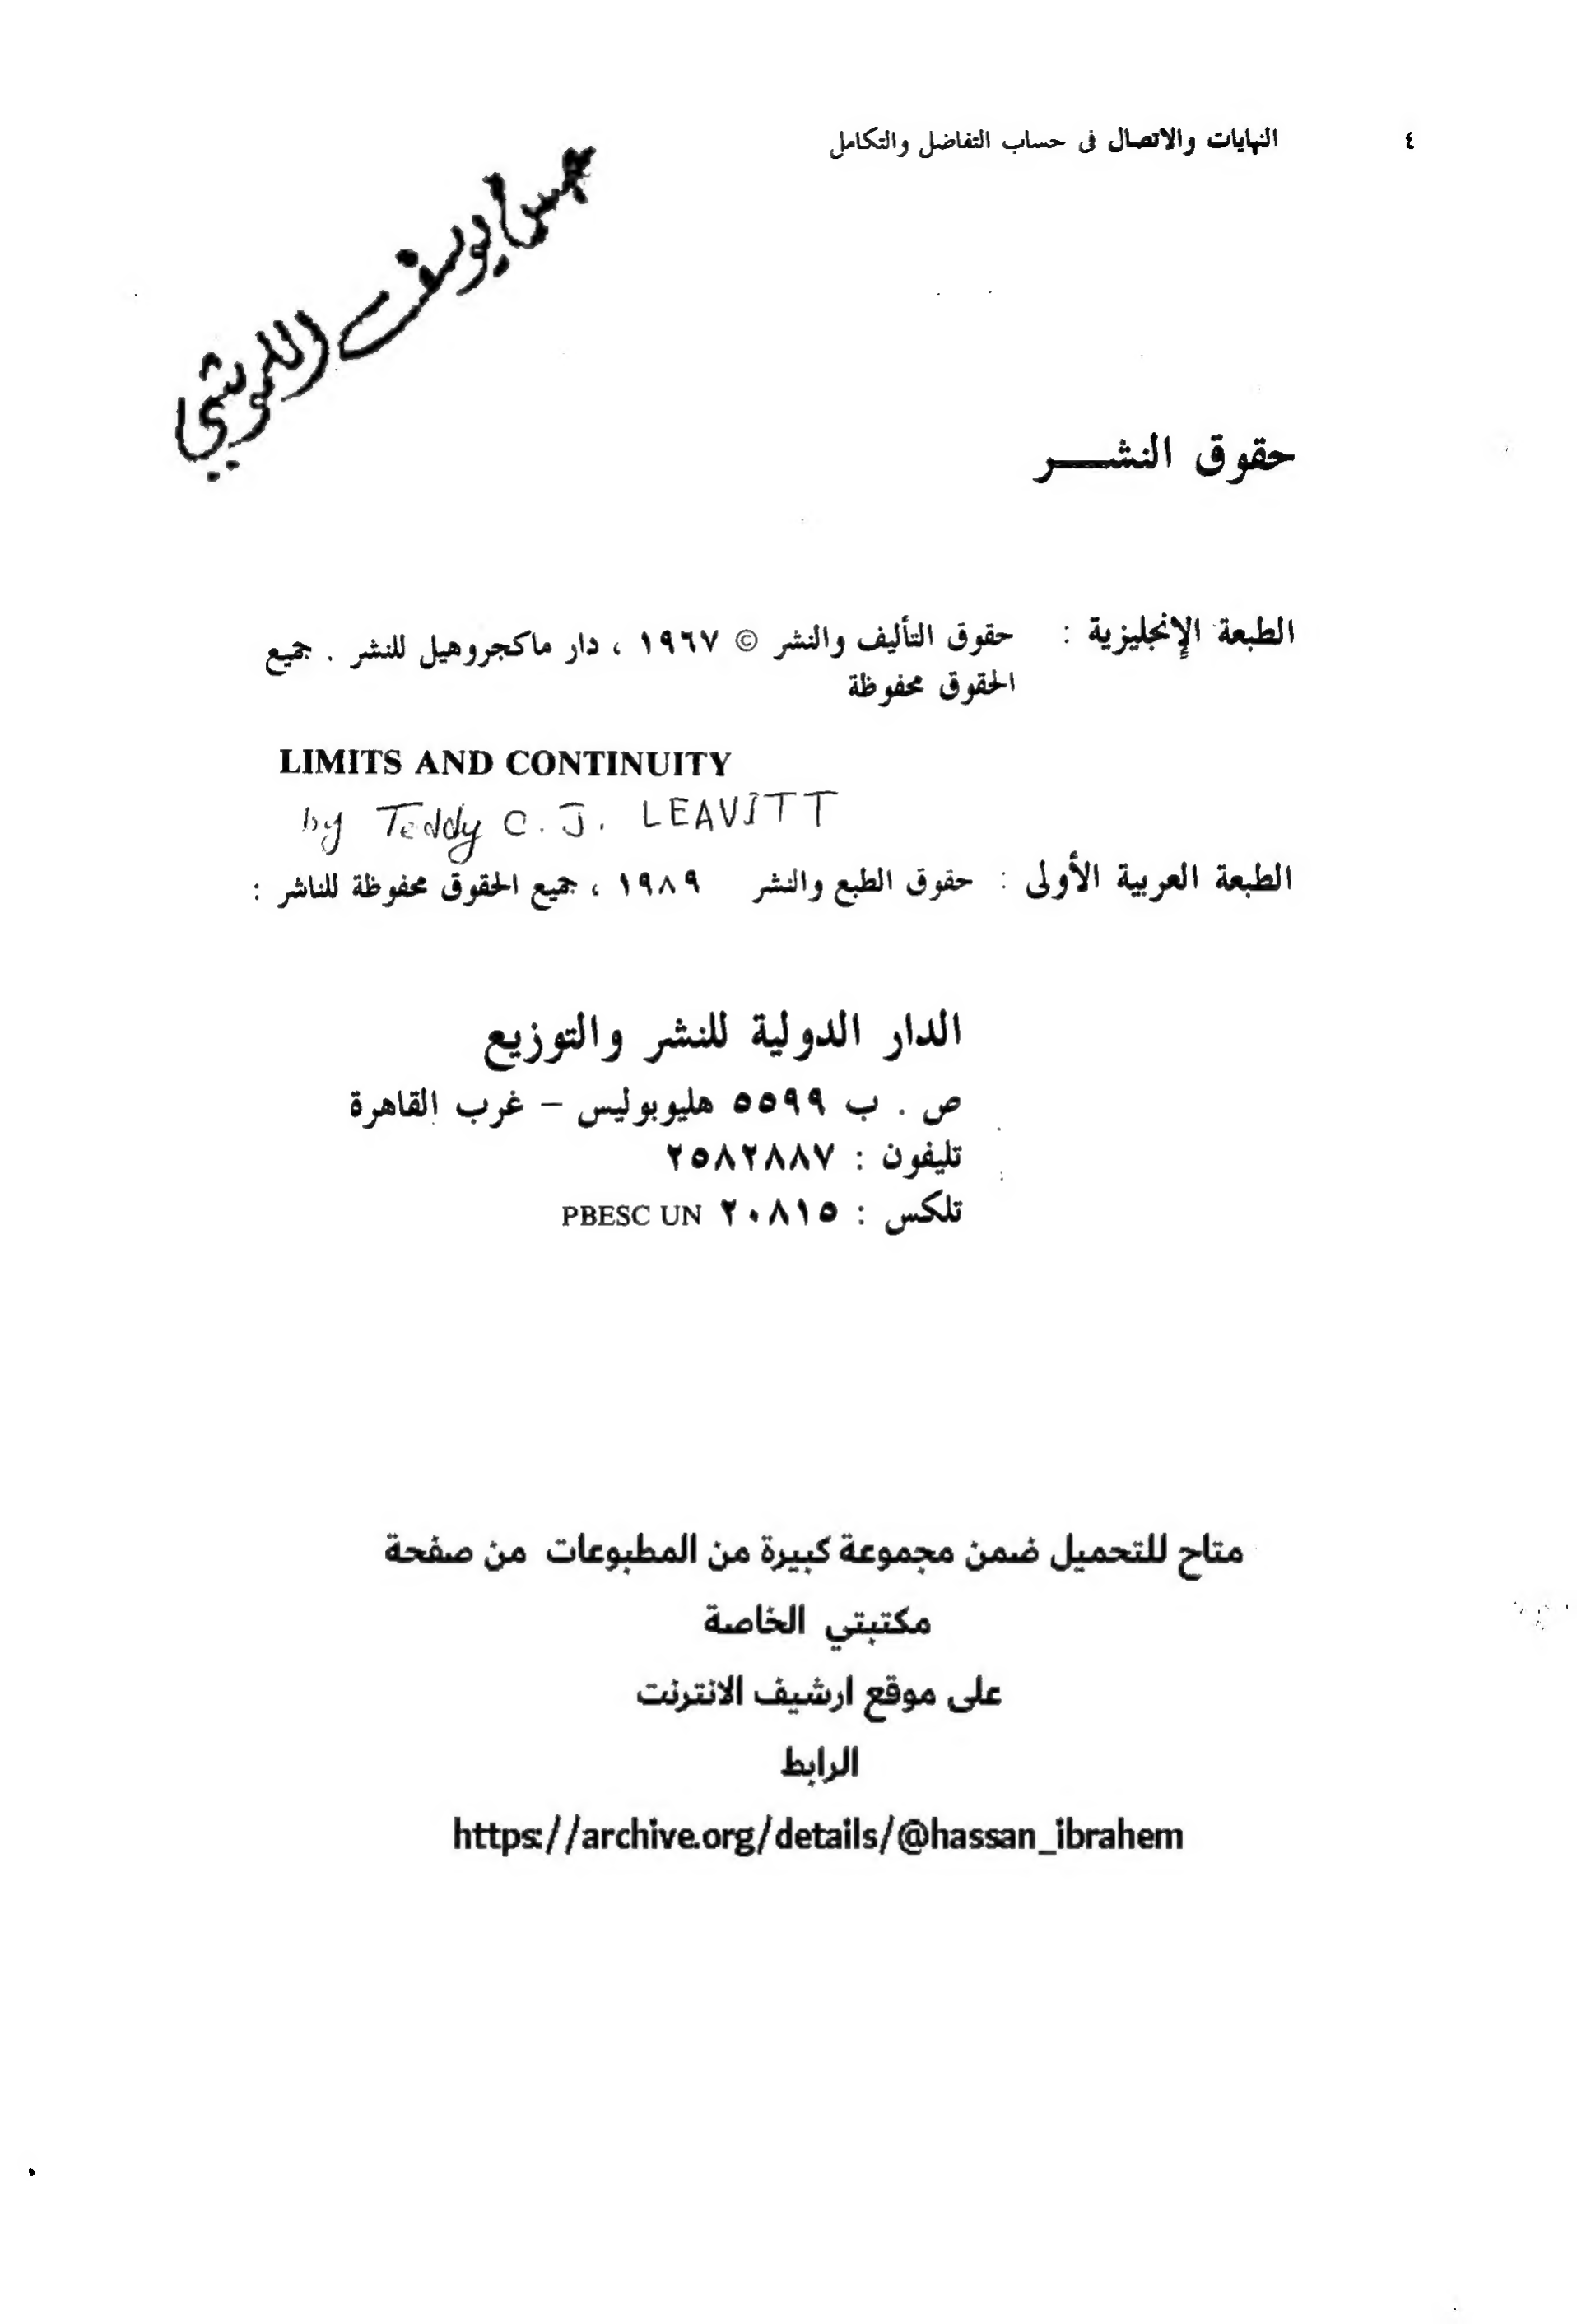 ٤
النهايات والاتصال فى حساب التفاضل والتكامل
يوسف
حقوق النشـــر
الطبعة الإنجليزية : حقوق التأليف والنشر © ١٩٦٧ ، دار ماكجروهيل للنشر . جميع
الحقوق محفوظة
LIMITS AND CONTINUITY
by Teddy C. J. LEAVITT
الطبعة العربية الأولى : حقوق الطبع والنشر ١٩٨٩ ، جميع الحقوق محفوظة للناشر :
الدار الدولية للنشر والتوزيع
ص . ب ٥٥٩٩ هليوبوليس – غرب القاهرة
تليفون : ٢٥٨٢٨٨٧
تلكس : ٢٠٨١٥ PBESC UN
متاح للتحميل ضمن مجموعة كبيرة من المطبوعات من صفحة
مكتبتي الخاصة
على موقع ارشيف الانترنت
الرابط
https://archive.org/details/@hassan_ibrahem